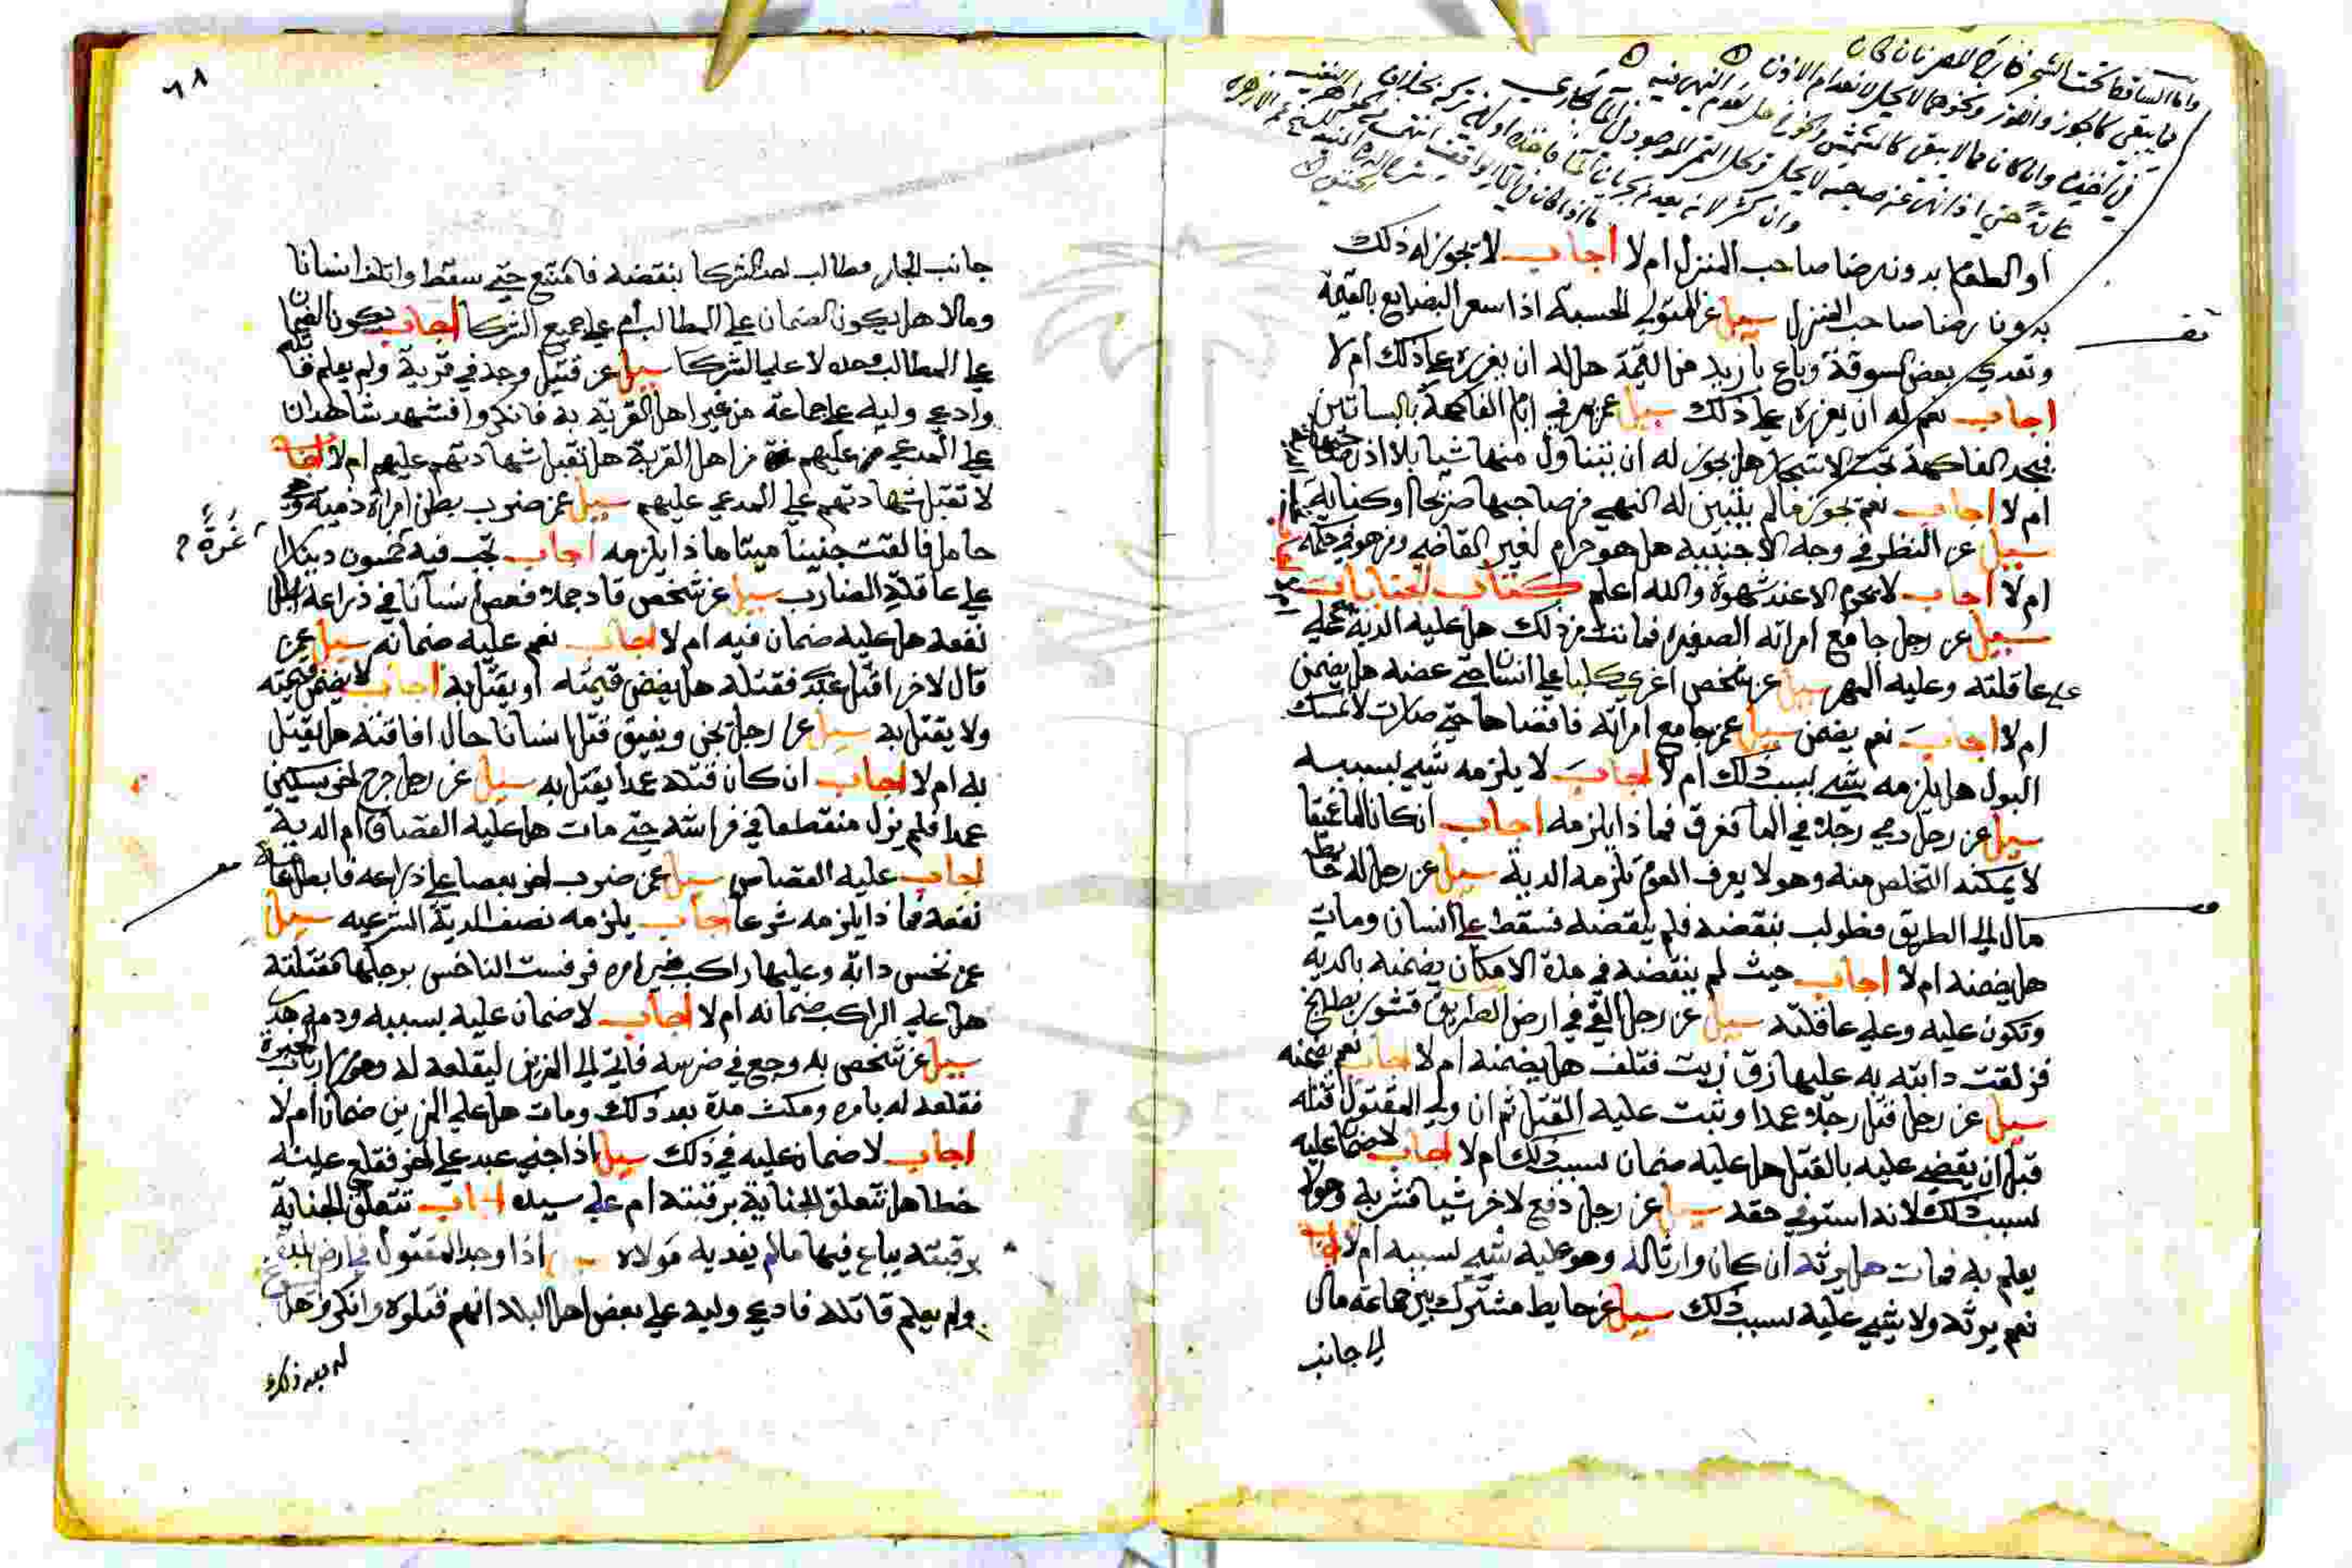 او الطعام بدون رضا صاحب المنزل ام لا اجاب لا يجوز له ذلك
بدون رضا صاحب المنزل سيل عن المتولي الحسبة اذا سعر البضايع بالقيمة
وتعدي بعض السوقة وباع بازيد من القيمة هل له ان يعزره على ذلك ام لا
اجاب نعم له ان يعزره على ذلك سيل عمن مر في ايام الفاكهة بالبساتين
فيجد الفاكهة تحت الاشجار هل يجوز له ان يتناول منها شيا بلا اذن صاحبها
ام لا اجاب نعم يجوز مالم يتبين له النهي من صاحبها صريحا او كناية
سيل عن النظر في وجه الاجنبية هل هو حرام لغير القاضي ومن هو في حكمه
ام لا اجاب لا يحرم الا عند شهوة والله اعلم كتاب الجنايات
سيل عن رجل جامع امراته الصغيرة فماتت من ذلك هل عليه الدية
على عاقلته وعليه المهر سيل عن شخص اغرى كلبا على انسان حتى عضه هل يضمن
ام لا اجاب نعم يضمن سيل عمن جامع امراته فافضاها حتى صارت لا تمسك
البول هل يلزمه شي بسبب ذلك ام لا اجاب لا يلزمه شي بسببه
سيل عن رجل رمي رجلا في الما فغرق فماذا يلزمه اجاب ان كان الما عميقا
لا يمكنه التخلص منه وهو لا يعرف العوم تلزمه الدية سيل عن رجل له حايط
مال الى الطريق فطولب بنقضه فلم ينقضه فسقط على انسان ومات
هل يضمنه ام لا اجاب حيث لم ينقضه في مدة الامكان يضمنه بالدية
وتكون عليه وعلى عاقلته سيل عن رجل القي في ارض الطريق قشور بطيخ
فزلقت دابته به عليها زق زيت فتلف هل يضمنه ام لا اجاب نعم يضمنه
سيل عن رجل قتل رجلا عمدا وثبت عليه القتل ثم ان ولي المقتول قتله
قبل ان يقضى عليه بالقتل هل عليه ضمان بسبب ذلك ام لا اجاب لا ضمان عليه
بسبب ذلك لانه استوفي حقه سيل عن رجل دفع لاخر شيا فشربه وهو لا
يعلم به فمات هل يرثه ان كان وارثا له وهو عليه شي بسببه ام لا اجاب
نعم يرثه ولا شي عليه بسبب ذلك سيل عن حايط مشترك بين جماعة مال
الى جانب
٦٨
جانب الجار وطالب احد الشركا بنقضه فامتنع حتى سقط واتلف انسانا
ومالا هل يكون الضمان على المطالب ام على جميع الشركا اجاب يكون الضمان
على المطالب وحده لا على الشركا سيل عن قتيل وجد في قرية ولم يعلم قاتله
وادعى وليه على جماعة من غير اهل القرية به فانكروا فشهد شاهدان
على المدعي عليهم من اهل القرية هل تقبل شهادتهم عليهم ام لا اجاب
لا تقبل شهادتهم على المدعي عليهم سيل عمن ضرب بطن امراة ذمية وهي
حامل فالقت جنينا ميتا ماذا يلزمه اجاب تجب فيه خمسون دينارا
غُرَّة
على عاقلة الضارب سيل عن شخص قاد جملا فعض انسانا في ذراعه
نفعه هل عليه ضمان فيه ام لا اجاب نعم عليه ضمانه سيل عمن
قال لاخر اقتل عبدي فقتله هل يضمن قيمته او يقتل به اجاب لا يضمن قيمته
ولا يقتل به سيل عن رجل يجن ويفيق قتل انسانا حال افاقته هل يقتل
به ام لا اجاب ان كان قتله عمدا يقتل به سيل عن رجل جرح اخر بسكين
عمدا فلم يزل منقطعا في فراشه حتى مات هل عليه القصاص ام الدية
اجاب عليه القصاص سيل عمن ضرب اخر بعصا على ذراعه فابطل
نفعه فماذا يلزمه شرعا اجاب يلزمه نصف الدية الشرعيه سيل
عمن نخس دابة وعليها راكب بغير امره فرفست الناخس برجلها فقتلته
هل على الراكب ضمانه ام لا اجاب لا ضمان عليه بسببه ودمه هدر
سيل عن شخص به وجع في ضرسه فاتي الى المزين ليقلعه له وهو من ارباب الخبرة
فقلعه له بامره ومكث مدة بعد ذلك ومات هل على المزين ضمان ام لا
اجاب لا ضمان عليه في ذلك سيل اذا جني عبد على اخر فقلع عينه
خطا هل تتعلق الجناية برقبته ام على سيده اجاب تتعلق الجناية
برقبته يباع فيها مالم يفديه مولاه سيل اذا وجد المقتول في ارض
ولم يعلم قاتله فادعى وليه على بعض اهل البلد انهم قتلوه وانكروا هل
له بعد ذلك